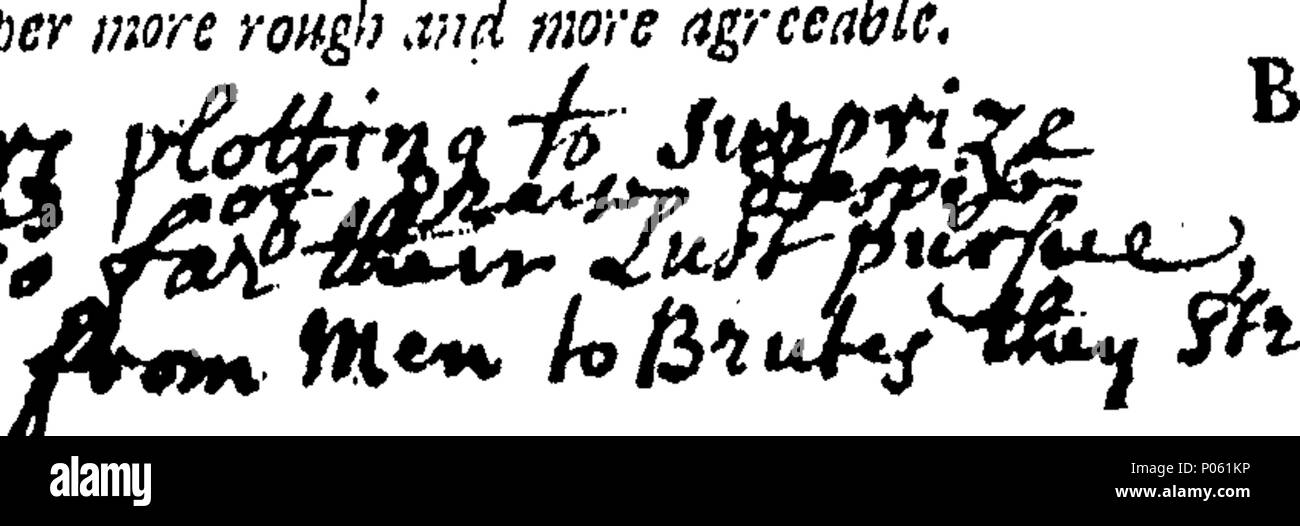 ber more rough and more agreeable.
B
rs plotting to surprize
and Praise despize
o far their Lust pursue,
from Men to Brutes they Str
alamy
Image ID: P061KP
www.alamy.com